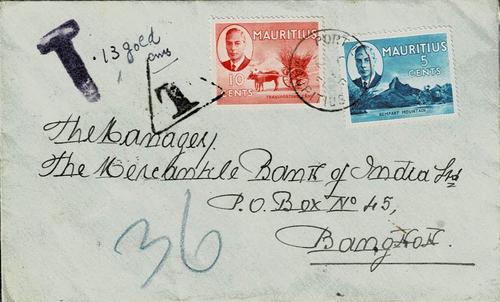 T
.13 gold
cms
T
MAURITIUS
10
CENTS
PORT
MAURITIUS
MAURITIUS
5
CENTS
REMPART MOUNTAIN
The Manager,
The Mercantile Bank of India Ltd
P.O. Box No 45,
BangKoK.
36